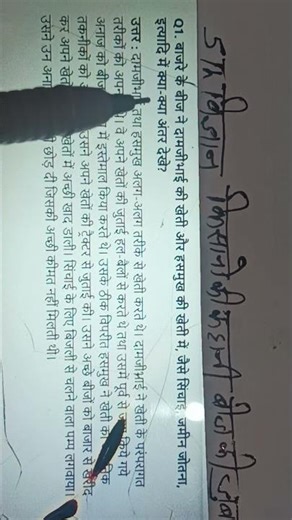 5th विज्ञान किसानों की कहानी बीज की जुबानी
Q1. बाजरे के बीज ने दामजीभाई की खेती और हसमुख की खेती में, जैसे सिंचाई, जमीन जोतना,
इत्यादि में क्या-क्या अंतर देखे?
उत्तर : दामजीभाई तथा हसमुख अलग-अलग तरीके से खेती करते थे। दामजीभाई ने खेती के परंपरागत
तरीकों को अपना थे। वे अपने खेतों की जुताई हल-बैलों से करते थे तथा उसमें पूर्व से किये गये
अनाज को बीज में इस्तेमाल किया करते थे। उसके ठीक विपरीत हसमुख ने खेती के
तकनीकों को उसने अपने खेतों की ट्रैक्टर से जुताई की। उसने अच्छे बीजों को बाजार से खरीद
कर अपने खेत खेतों में अच्छी खाद डाली। सिंचाई के लिए बिजली से चलने वाला पम्प लगवाया।
उसने उन अना छोड़ दी जिसकी अच्छी कीमत नहीं मिलती थी।